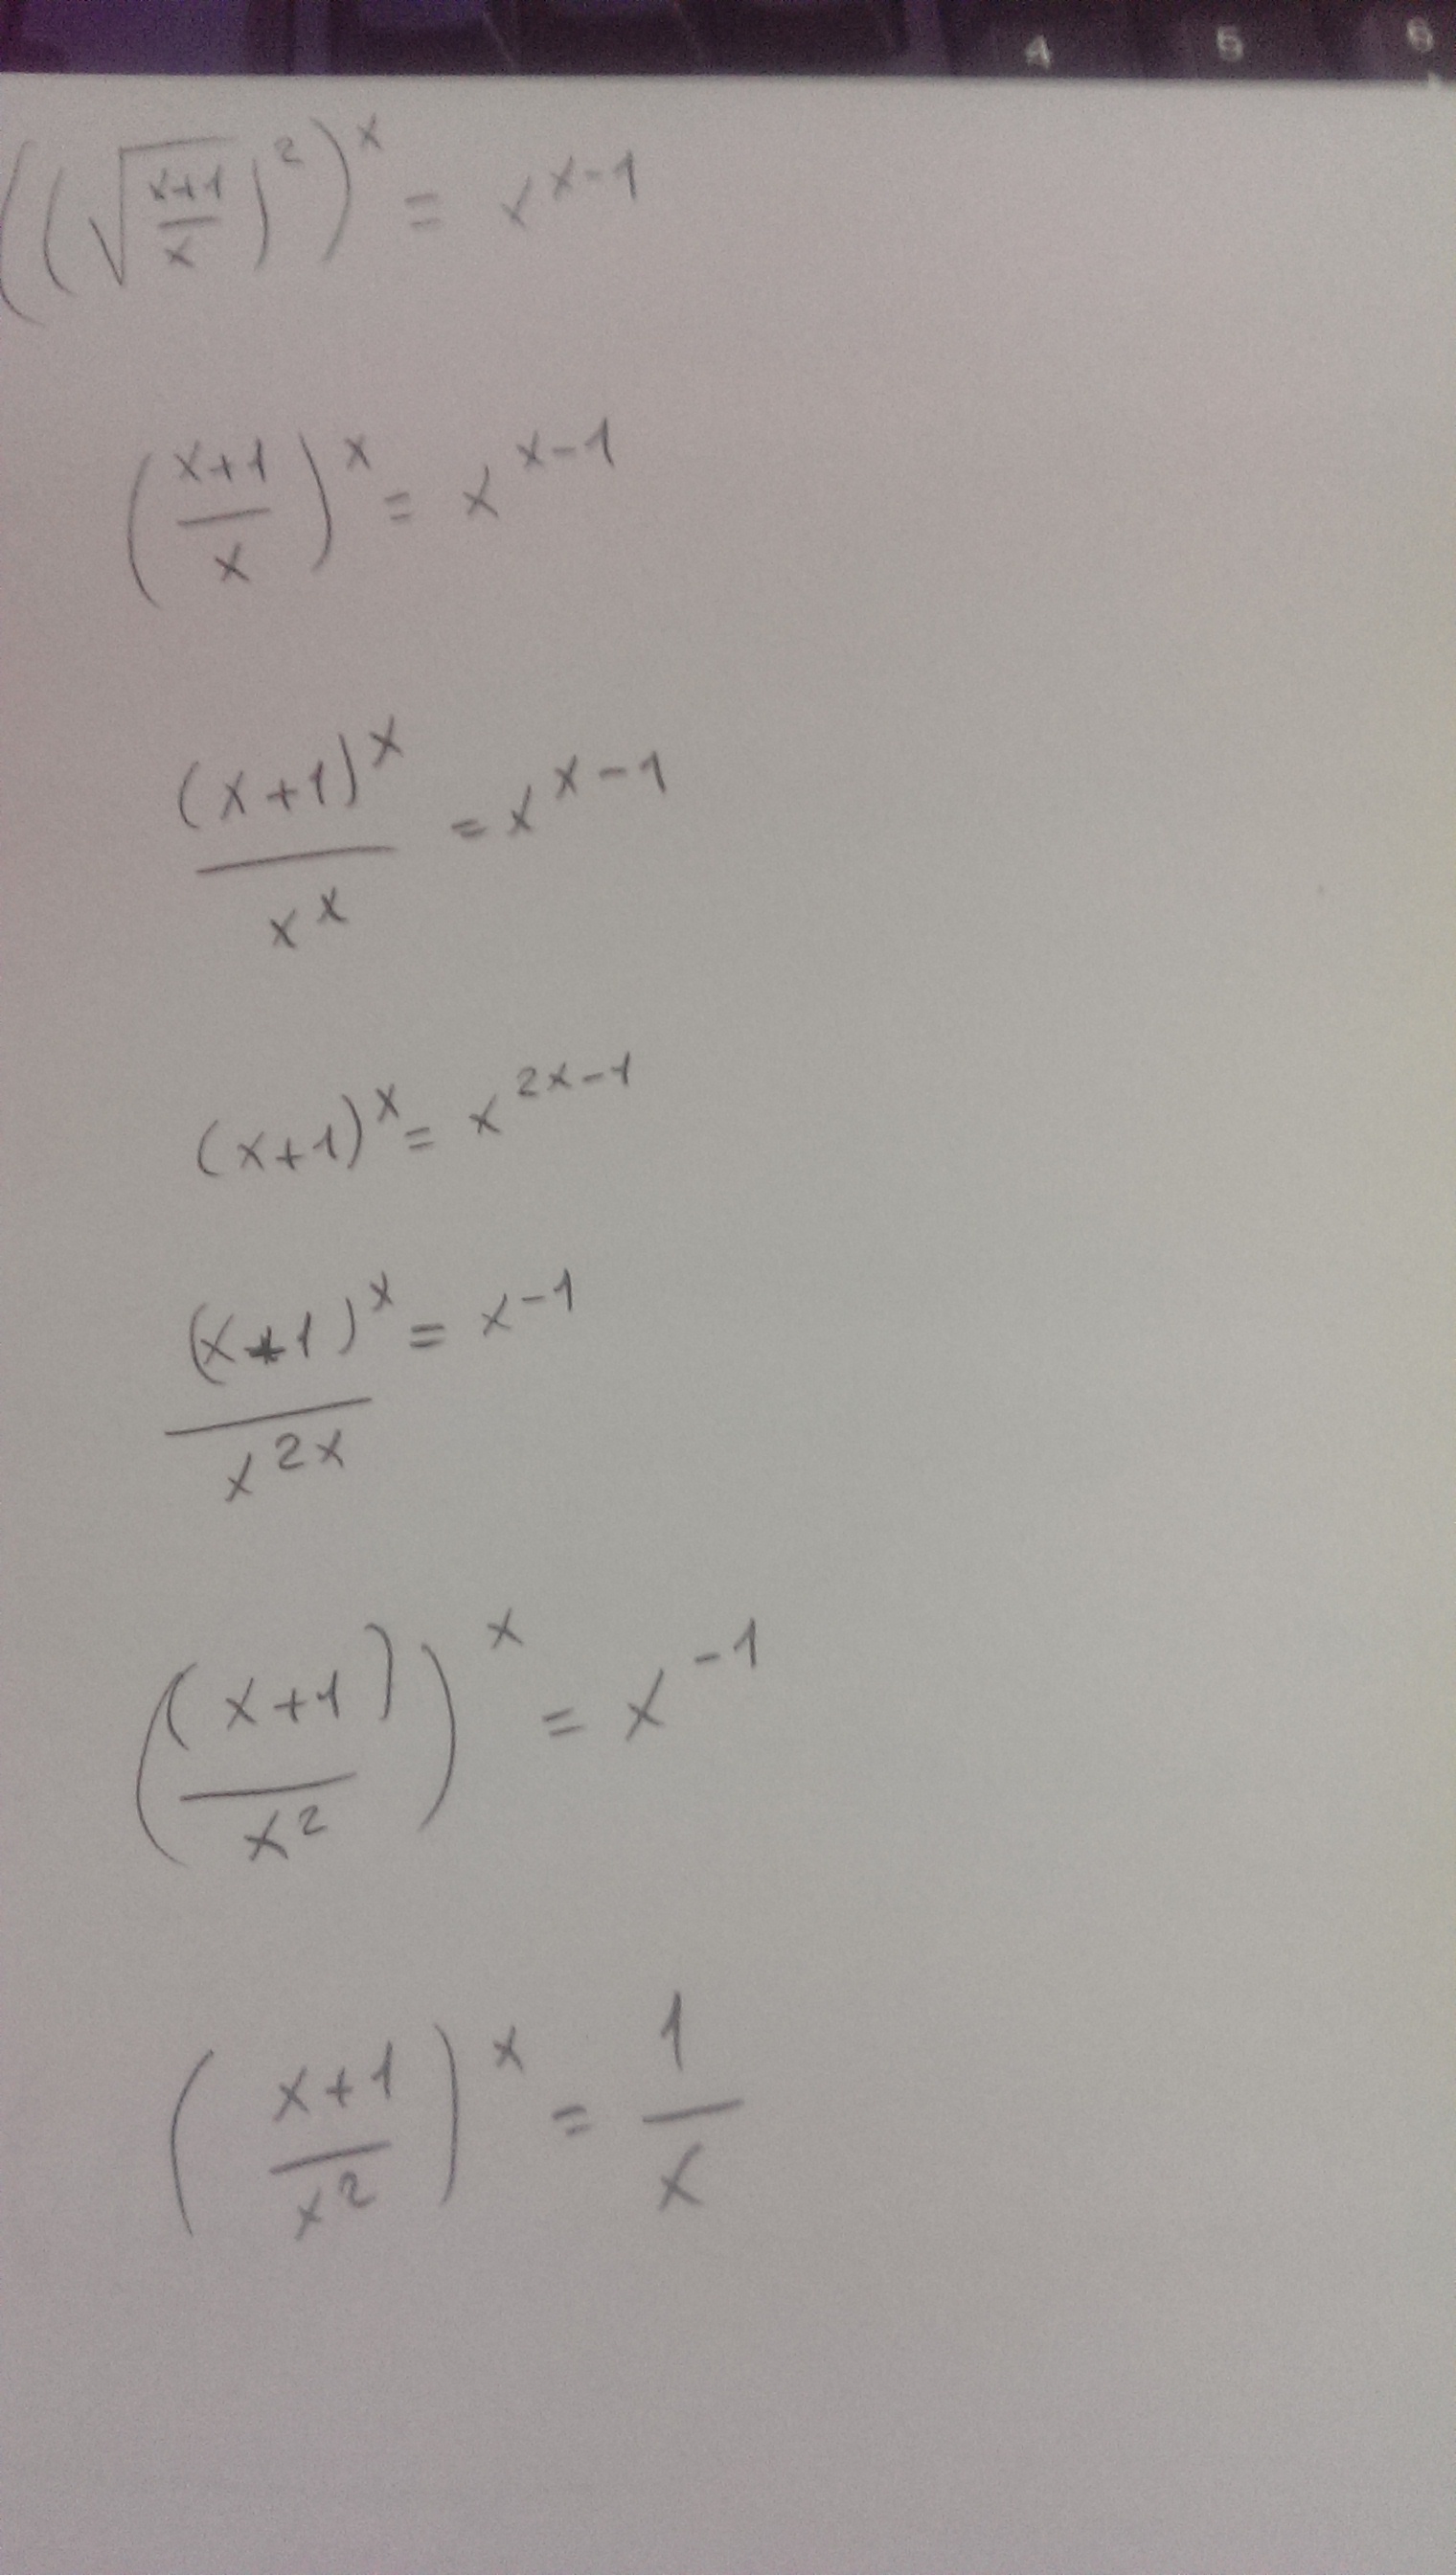 4 5 6
((√((x+1)/x))²)ˣ = x^(x-1)
((x+1)/x)^x = x^(x-1)
(x+1)^x / x^x = x^(x-1)
(x+1)^x = x^(2x-1)
(x+1)^x / x^(2x) = x^(-1)
((x+1)/x²)^x = x^(-1)
((x+1)/x²)^x = 1/x